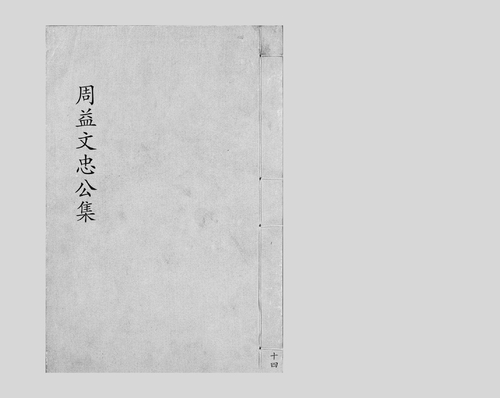 周益文忠公集
十四